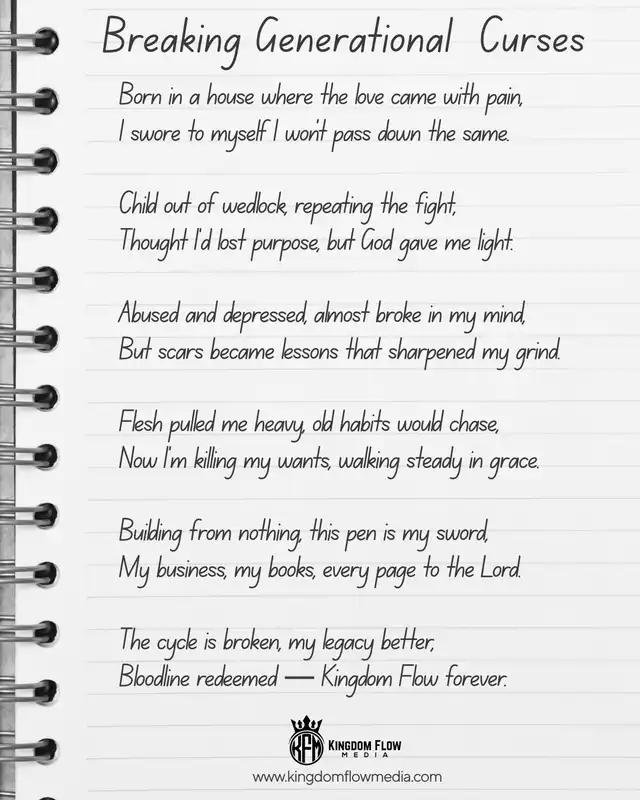 Breaking Generational Curses
Born in a house where the love came with pain,
I swore to myself I won't pass down the same.
Child out of wedlock, repeating the fight,
Thought I'd lost purpose, but God gave me light.
Abused and depressed, almost broke in my mind,
But scars became lessons that sharpened my grind.
Flesh pulled me heavy, old habits would chase,
Now I'm killing my wants, walking steady in grace.
Building from nothing, this pen is my sword,
My business, my books, every page to the Lord.
The cycle is broken, my legacy better,
Bloodline redeemed — Kingdom Flow forever.
KFM
KINGDOM FLOW
MEDIA
www.kingdomflowmedia.com